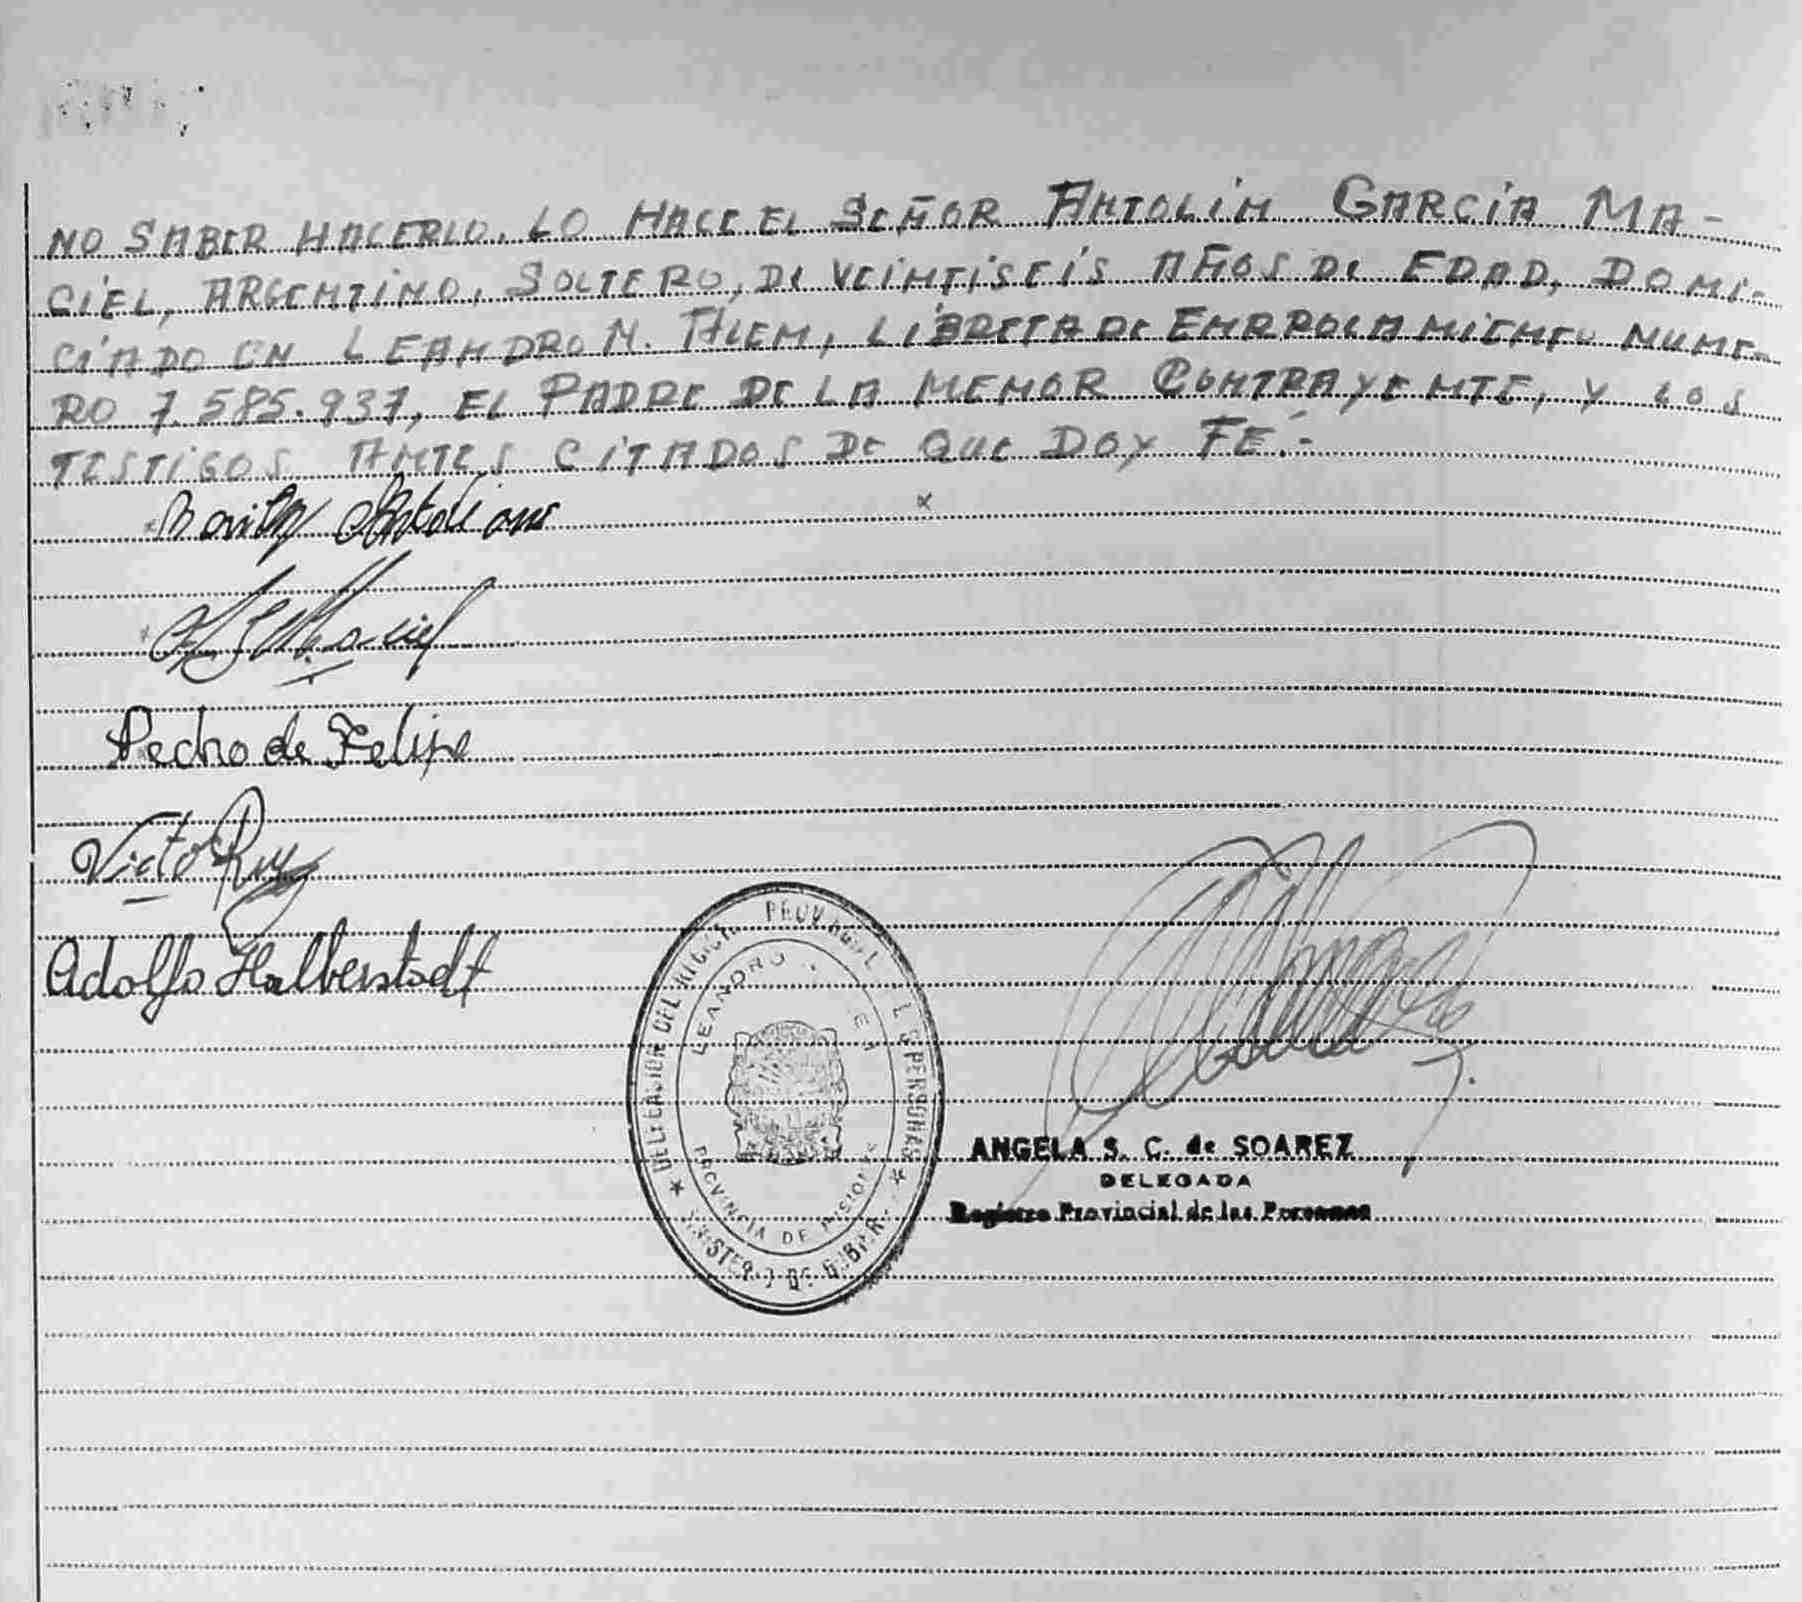 NO SABER HACERLO. LO HACE EL SEÑOR ANTOLIN GARCÍA MA-
CIEL, ARGENTINO, SOLTERO, DE VEINTISEIS AÑOS DE EDAD, DOMI-
CIADO EN LEANDRO N. ALEM, LIBRETA DE ENRROLAMIENTO NUME-
RO 7.585.937, EL PADRE DE LA MENOR CONTRAYENTE, Y LOS
TESTIGOS ANTES CITADOS DE QUE DOY FE.-
Maciel
Pedro de Felipe
Victor Ruy
Adolfo Halberstadt
DELEGACION DEL REGISTRO PROVINCIAL DE LAS PERSONAS
LEANDRO N. ALEM
PROVINCIA DE MISIONES
MINISTERIO DE GOBIERNO
ANGELA S. C. de SOAREZ
DELEGADA
Registro Provincial de las Personas